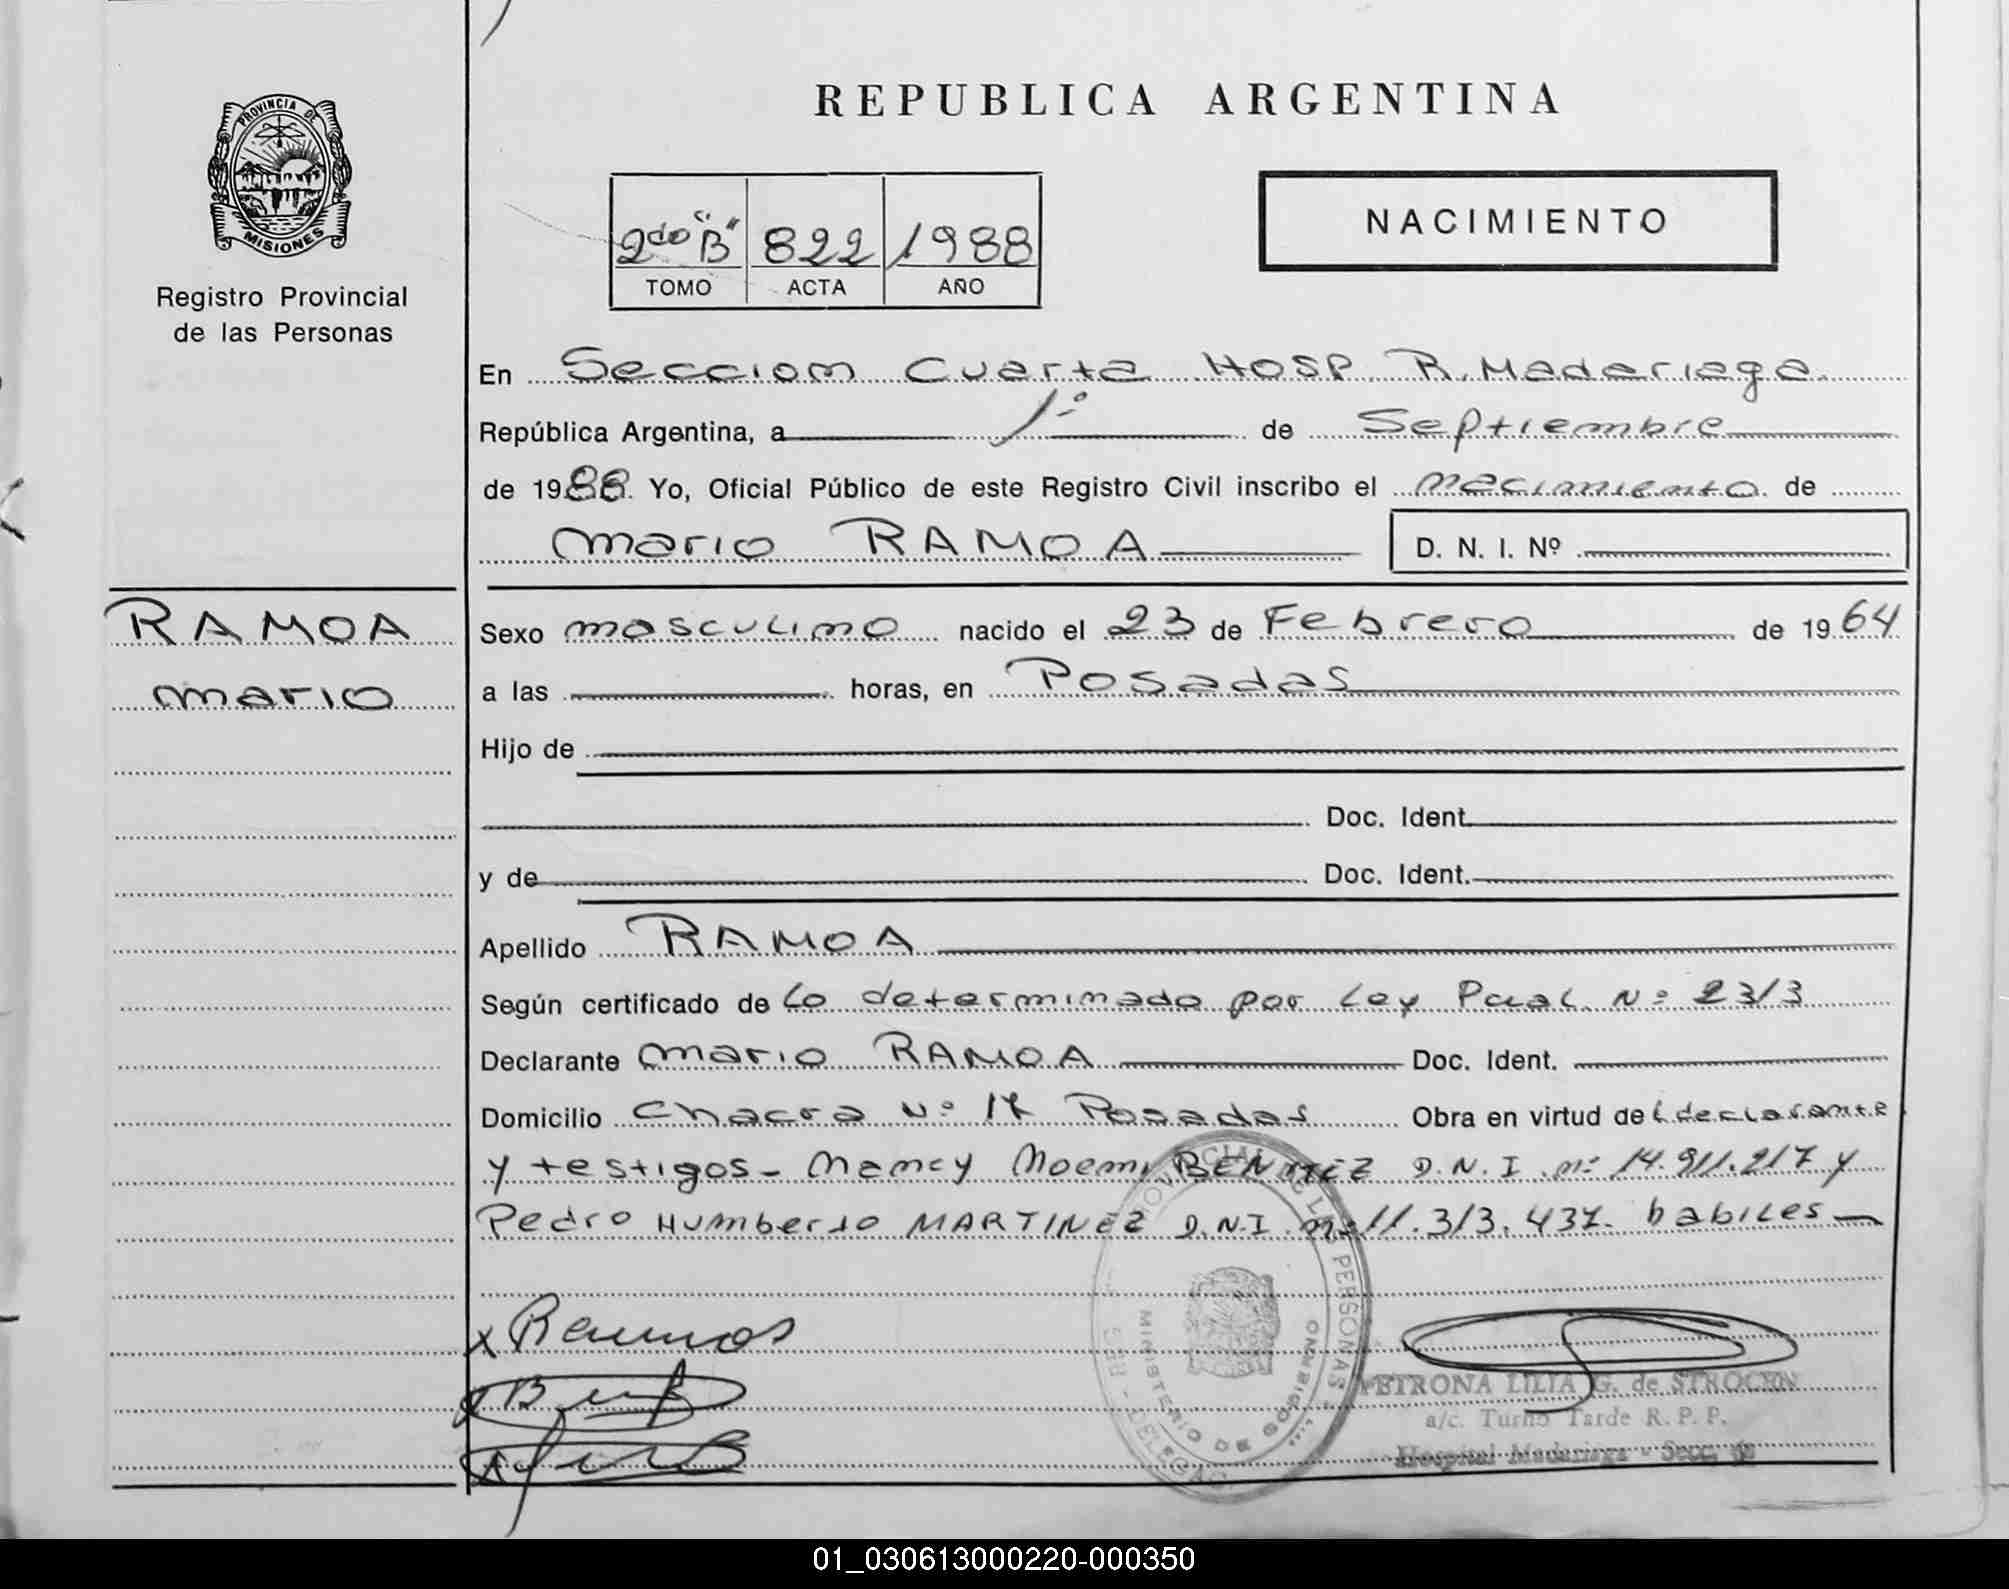 REPUBLICA ARGENTINA
PROVINCIA DE
MISIONES
Registro Provincial
de las Personas
2do "B" 822 1988
TOMO ACTA AÑO
NACIMIENTO
En Seccion Cuarta Hosp. R. Madariaga
República Argentina, a 1º de Septiembre
de 1988. Yo, Oficial Público de este Registro Civil inscribo el nacimiento de
Mario RAMOA D. N. I. Nº
RAMOA
Mario
Sexo masculino nacido el 23 de Febrero de 1964
a las horas, en Posadas
Hijo de
Doc. Ident.
y de Doc. Ident.
Apellido RAMOA
Según certificado de Lo determinado por Ley Pcial. Nº 2313
Declarante Mario RAMOA Doc. Ident.
Domicilio Chacra Nº Posadas Obra en virtud de declarante
y testigos - Nancy Noemi BENITEZ D.N.I. nº 14.911.217 y
Pedro Humberto MARTINEZ D.N.I. nº 11.313.437. habiles
x Ramos
PROVINCIAL DE LAS PERSONAS
MINISTERIO DE GOBIERNO
PETRONA LILIA G. de STROCEN
a/c. Turno Tarde R. P. P.
Hospital Madariaga - Secc. 4a
01_030613000220-000350